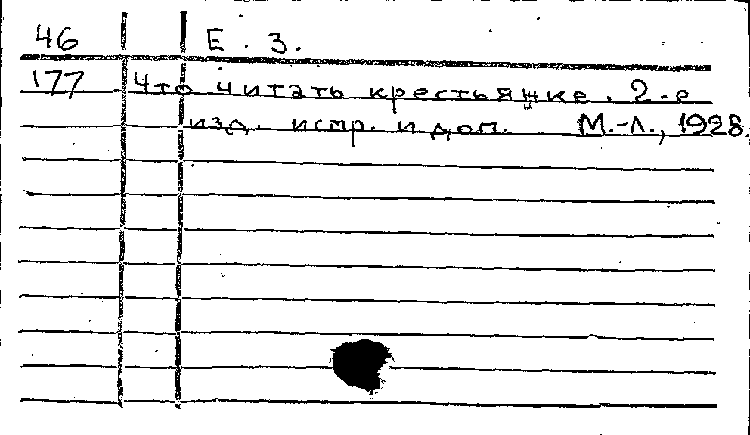 46 Е. З.
177 Что читать крестьянке. 2-е
изд. испр. и доп. М.-Л., 1928.